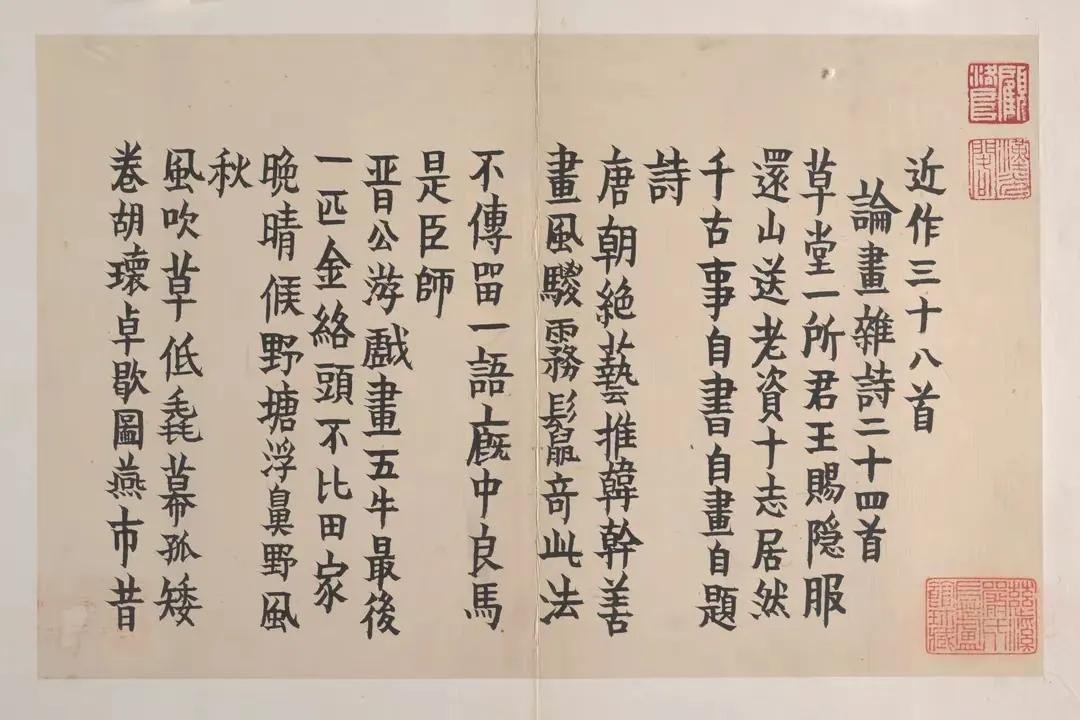 近作三十八首
論畫雜詩二十四首
草堂一所君王賜隐服
還山送老資十志居然
千古事自書自畫自題
詩
唐朝絶藝推韓幹善
畫風騣霧鬛奇此法
不傳留一語廐中良馬
是臣師
晋公游戲畫五牛最後
一匹金絡頭不比田家
晚晴候野塘浮鼻野風
秋
風吹草低毳幕孤矮
卷胡瓌卓歇圖燕市昔